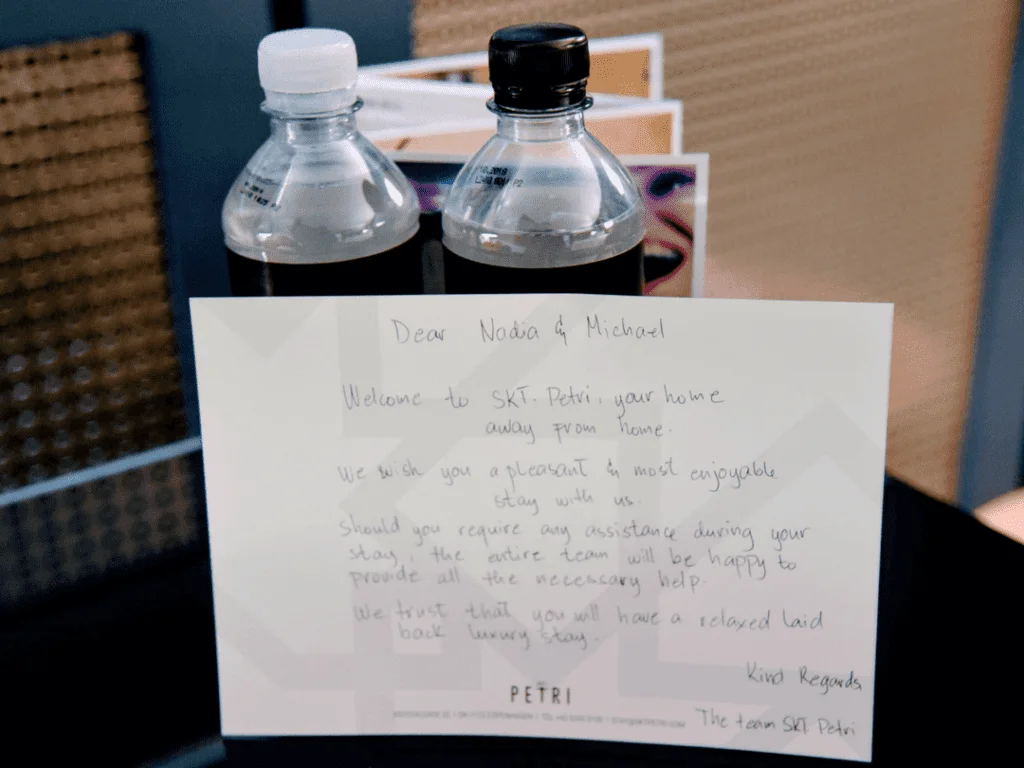 Dear Nadia & Michael
Welcome to SKT. Petri, your home
away from home.
We wish you a pleasant & most enjoyable
stay with us.
Should you require any assistance during your
stay, the entire team will be happy to
provide all the necessary help.
We trust that you will have a relaxed laid
back luxury stay.
Kind Regards,
PETRI
The team SKT Petri